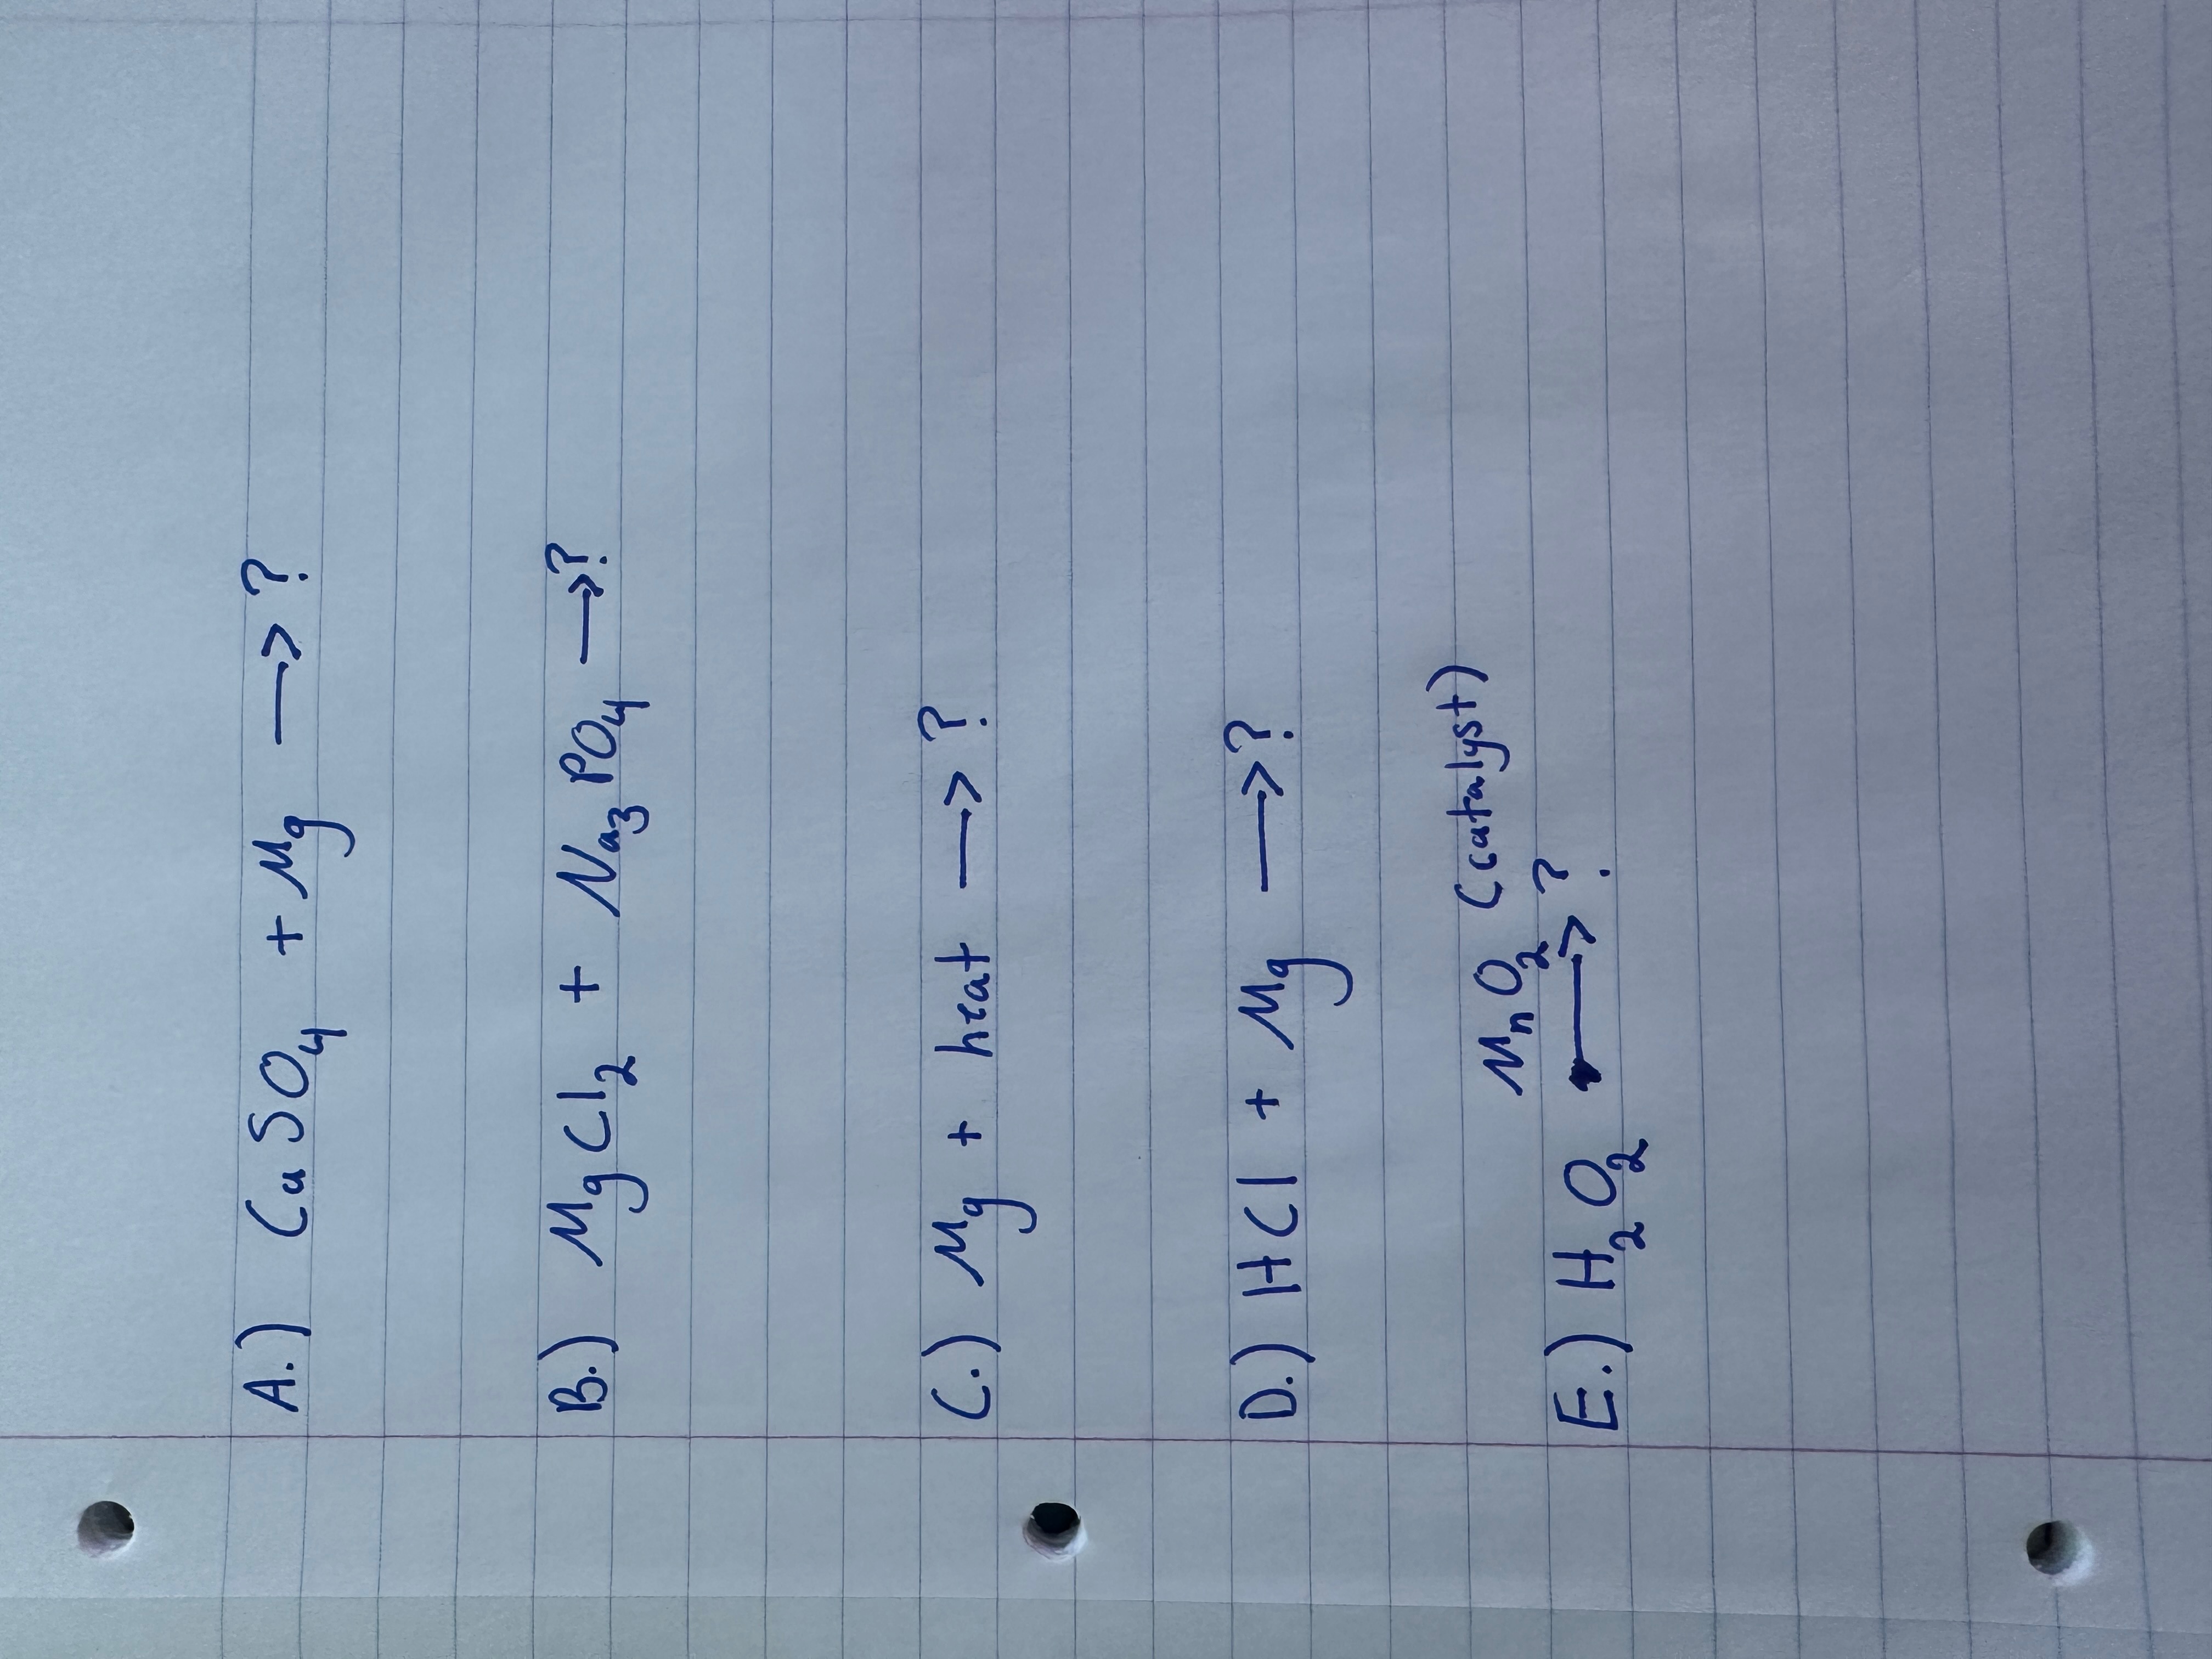 A.) CuSO₄ + Mg → ?
B.) MgCl₂ + Na₃PO₄ → ?
C.) Mg + heat → ?
D.) HCl + Mg → ?
MnO₂ (catalyst)
E.) H₂O₂ → ?